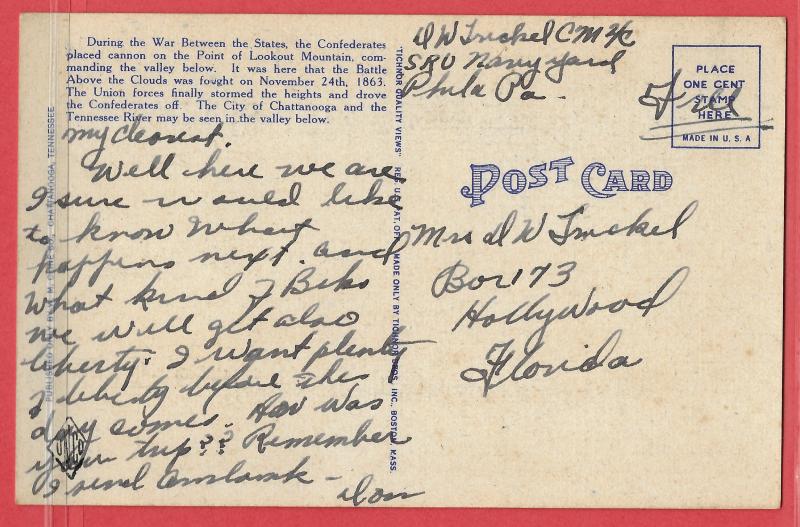 During the War Between the States, the Confederates
placed cannon on the Point of Lookout Mountain, com-
manding the valley below. It was here that the Battle
Above the Clouds was fought on November 24th, 1863.
The Union forces finally stormed the heights and drove
the Confederates off. The City of Chattanooga and the
Tennessee River may be seen in the valley below.
my dearest.
Well here we are
I sure would like
to know What
happens next. and
What kind of
we will get also
liberty. I want plenty
of liberty before the
day comes. How was
your trip?? Remember
I send
Don
"TICHNOR QUALITY VIEWS" REG. U. S. PAT. OFF. MADE ONLY BY TICHNOR BROS., INC., BOSTON, MASS.
CHATTANOOGA, TENNESSEE
D W Trickel CM 2/C
SRU Navy Yard
Phila Pa.
Free
PLACE
ONE CENT
STAMP
HERE
MADE IN U. S. A
POST CARD
Mrs D W Trickel
Box 173
Hollywood
Florida